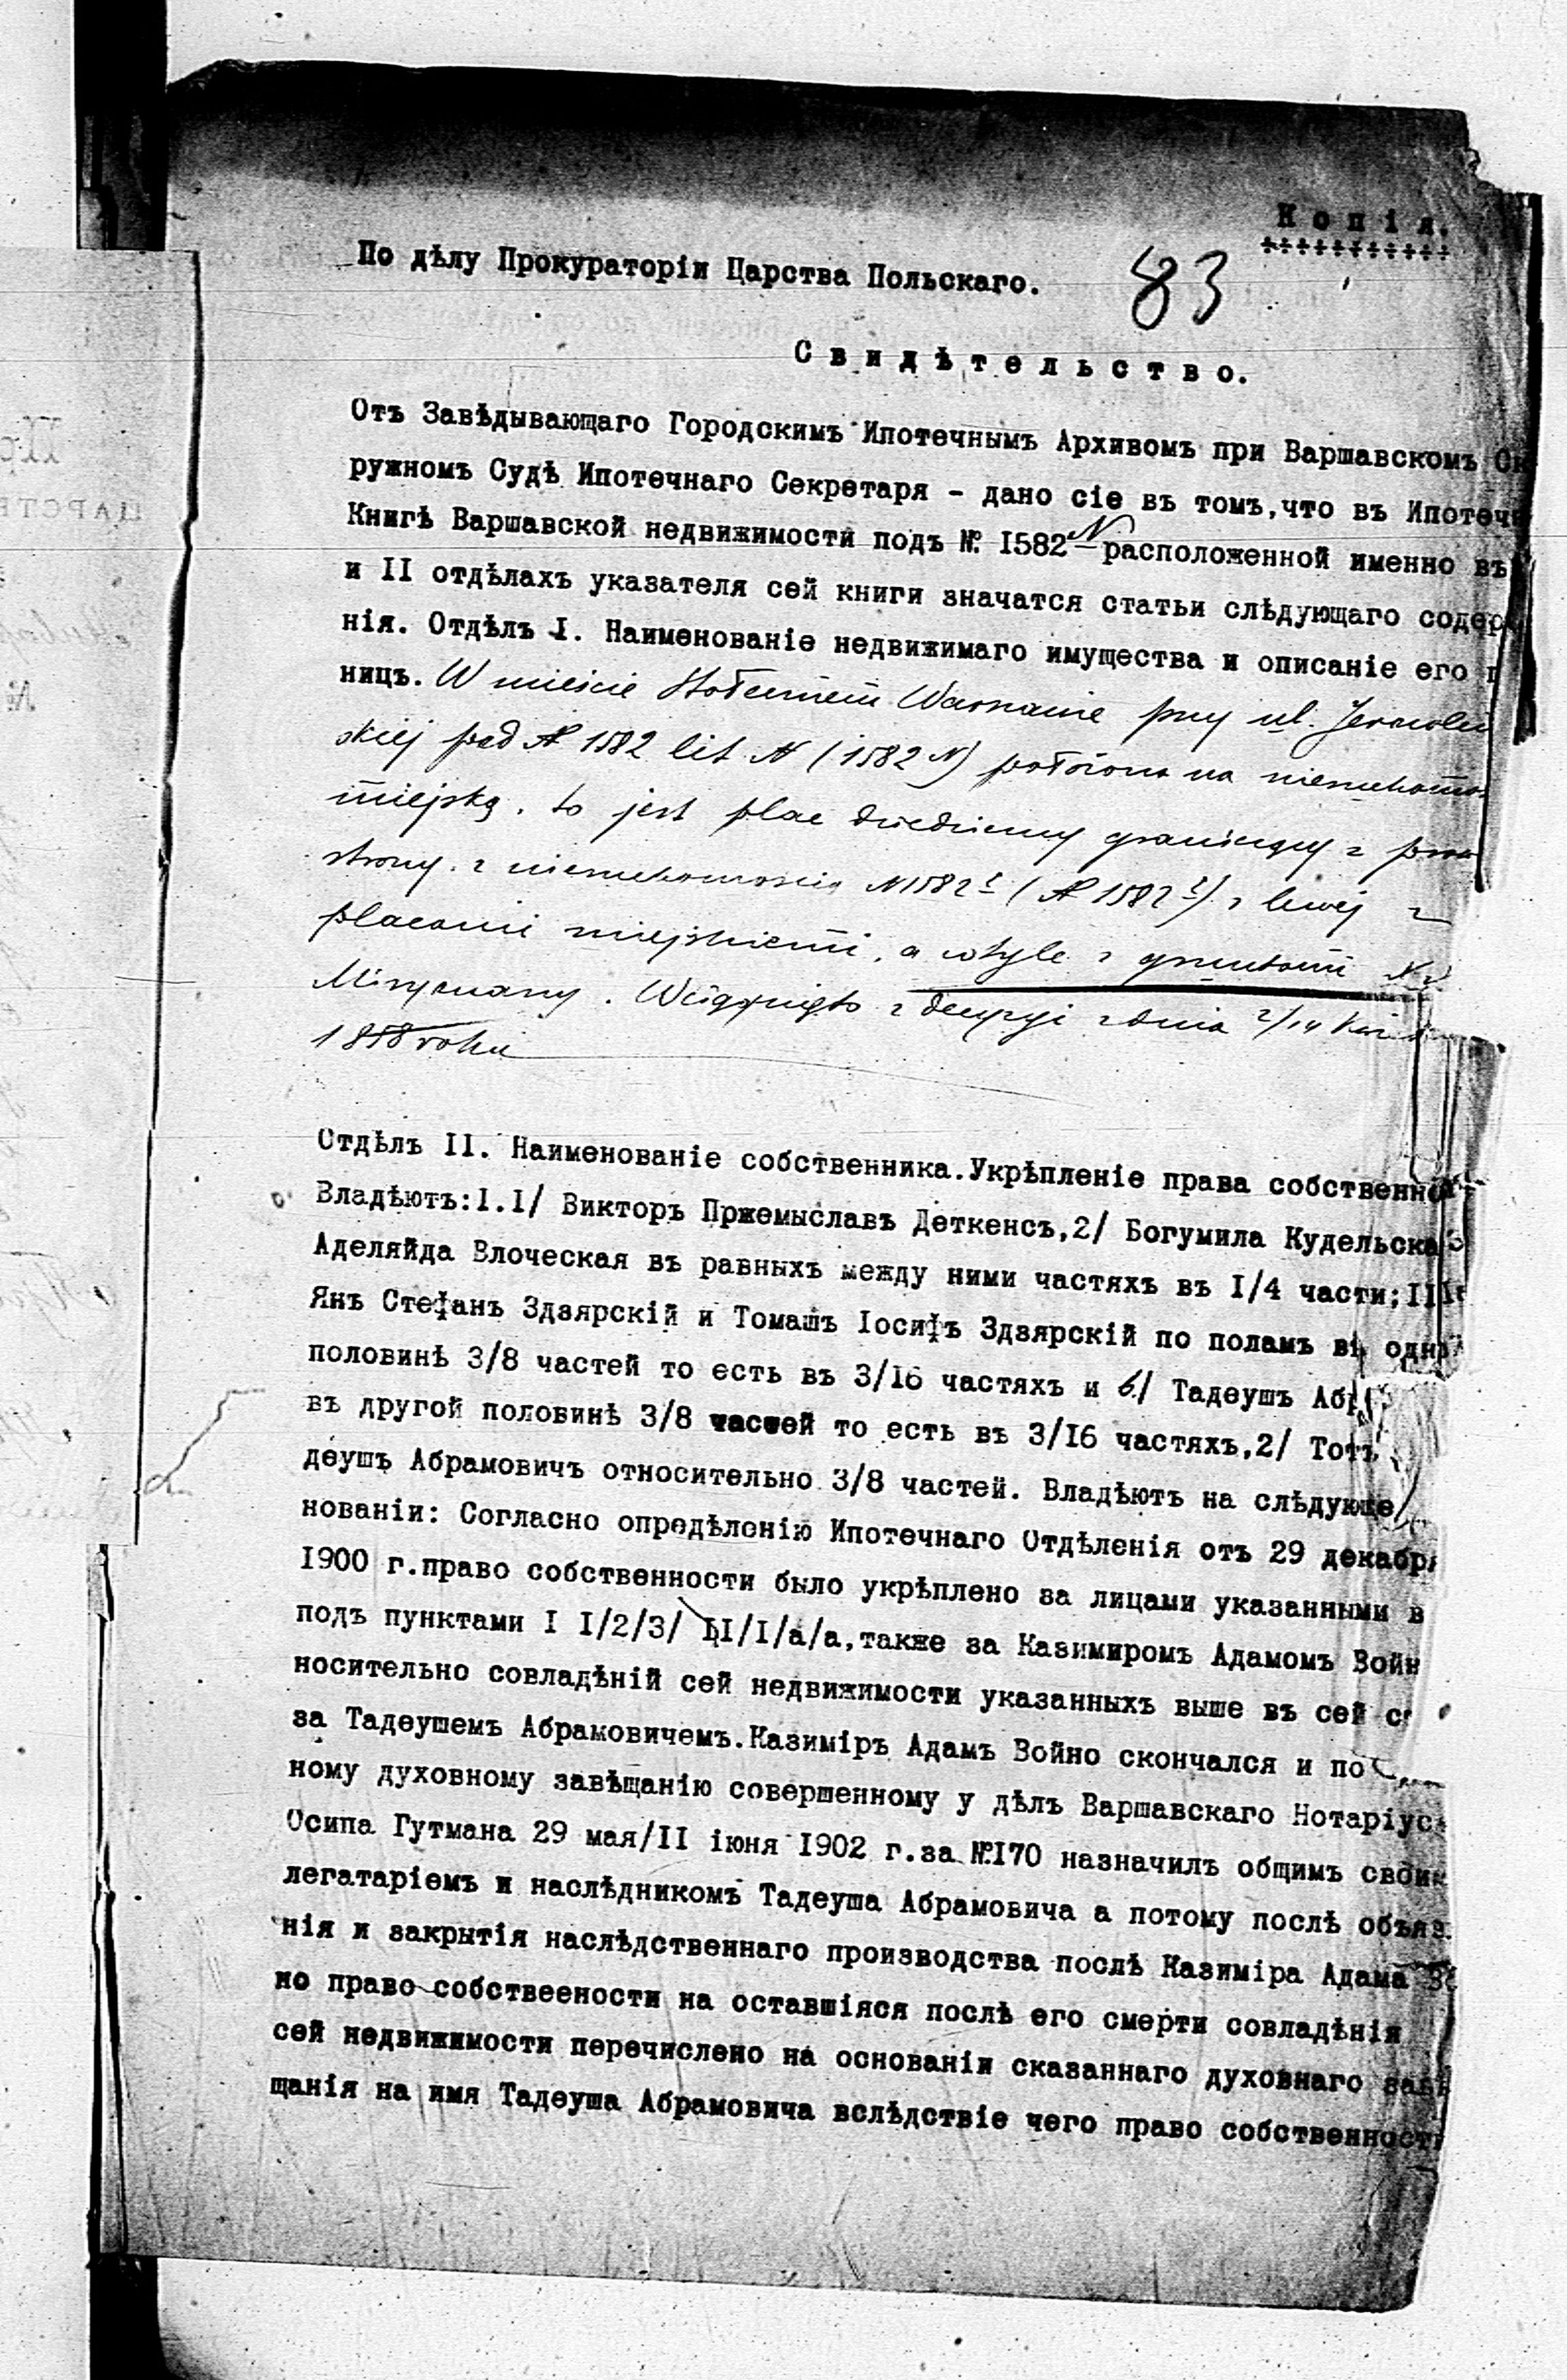 Копія.
По дѣлу Прокураторіи Царства Польскаго.
83
Свидѣтельство.
Отъ Завѣдывающаго Городскимъ Ипотечнымъ Архивомъ при Варшавскомъ Ок
ружномъ Судѣ Ипотечнаго Секретаря - дано сіе въ томъ,что въ Ипотечн
Книгѣ Варшавской недвижимости подъ №. I582 N расположенной именно въ
и II отдѣлахъ указателя сей книги значатся статьи слѣдующаго содер
нія. Отдѣлъ I. Наименованіе недвижимаго имущества и описаніе его г
ницъ. W mieście Stołecznem Warszawie przy ul. Jerozolim
skiej pod № 1582 lit N (1582 N) położona na nieruchomość
miejską, to jest plac dziedziczny graniczący z praw
strony z nieruchomością N1582 (№ 1582) z lewej z
placami miejskiemi, a w tyle z gruntami
Wciągnięto z decyzji z dnia 2/14
1858 roku
Отдѣлъ II. Наименованіе собственника.Укрѣпленіе права собственно
Владѣютъ:I.I/ Викторъ Пржемыславъ Деткенсъ,2/ Богумила Кудельска
Аделяйда Влоческая въ равныхъ между ними частяхъ въ I/4 части;II
Янъ Стефанъ Здзярскій и Томашъ Іосифъ Здзярскій по поламъ въ одн
половинѣ 3/8 частей то есть въ 3/I6 частяхъ и б/ Тадеушъ Абр
въ другой половинѣ 3/8 частей то есть въ 3/I6 частяхъ,2/ Тотъ
деушъ Абрамовичъ относительно 3/8 частей. Владѣютъ на слѣдующе
нованіи: Согласно опредѣленію Ипотечнаго Отдѣленія отъ 29 декабря
I900 г.право собственности было укрѣплено за лицами указанными в
подъ пунктами I I/2/3/ II/I/а/а,также за Казимиромъ Адамомъ Войн
носительно совладѣній сей недвижимости указанныхъ выше въ сей с
за Тадеушемъ Абрамовичемъ.Казиміръ Адамъ Войно скончался и по
ному духовному завѣщанію совершенному у дѣлъ Варшавскаго Нотаріуса
Осипа Гутмана 29 мая/II іюня I902 г.за №I70 назначилъ общимъ своим
легатаріемъ и наслѣдникомъ Тадеуша Абрамовича а потому послѣ объяв
нія и закрытія наслѣдственнаго производства послѣ Казиміра Адама Во
но право собствеености на оставшіяся послѣ его смерти совладѣнія
сей недвижимости перечислено на основаніи сказаннаго духовнаго завѣ
щанія на имя Тадеуша Абрамовича вслѣдствіе чего право собственности